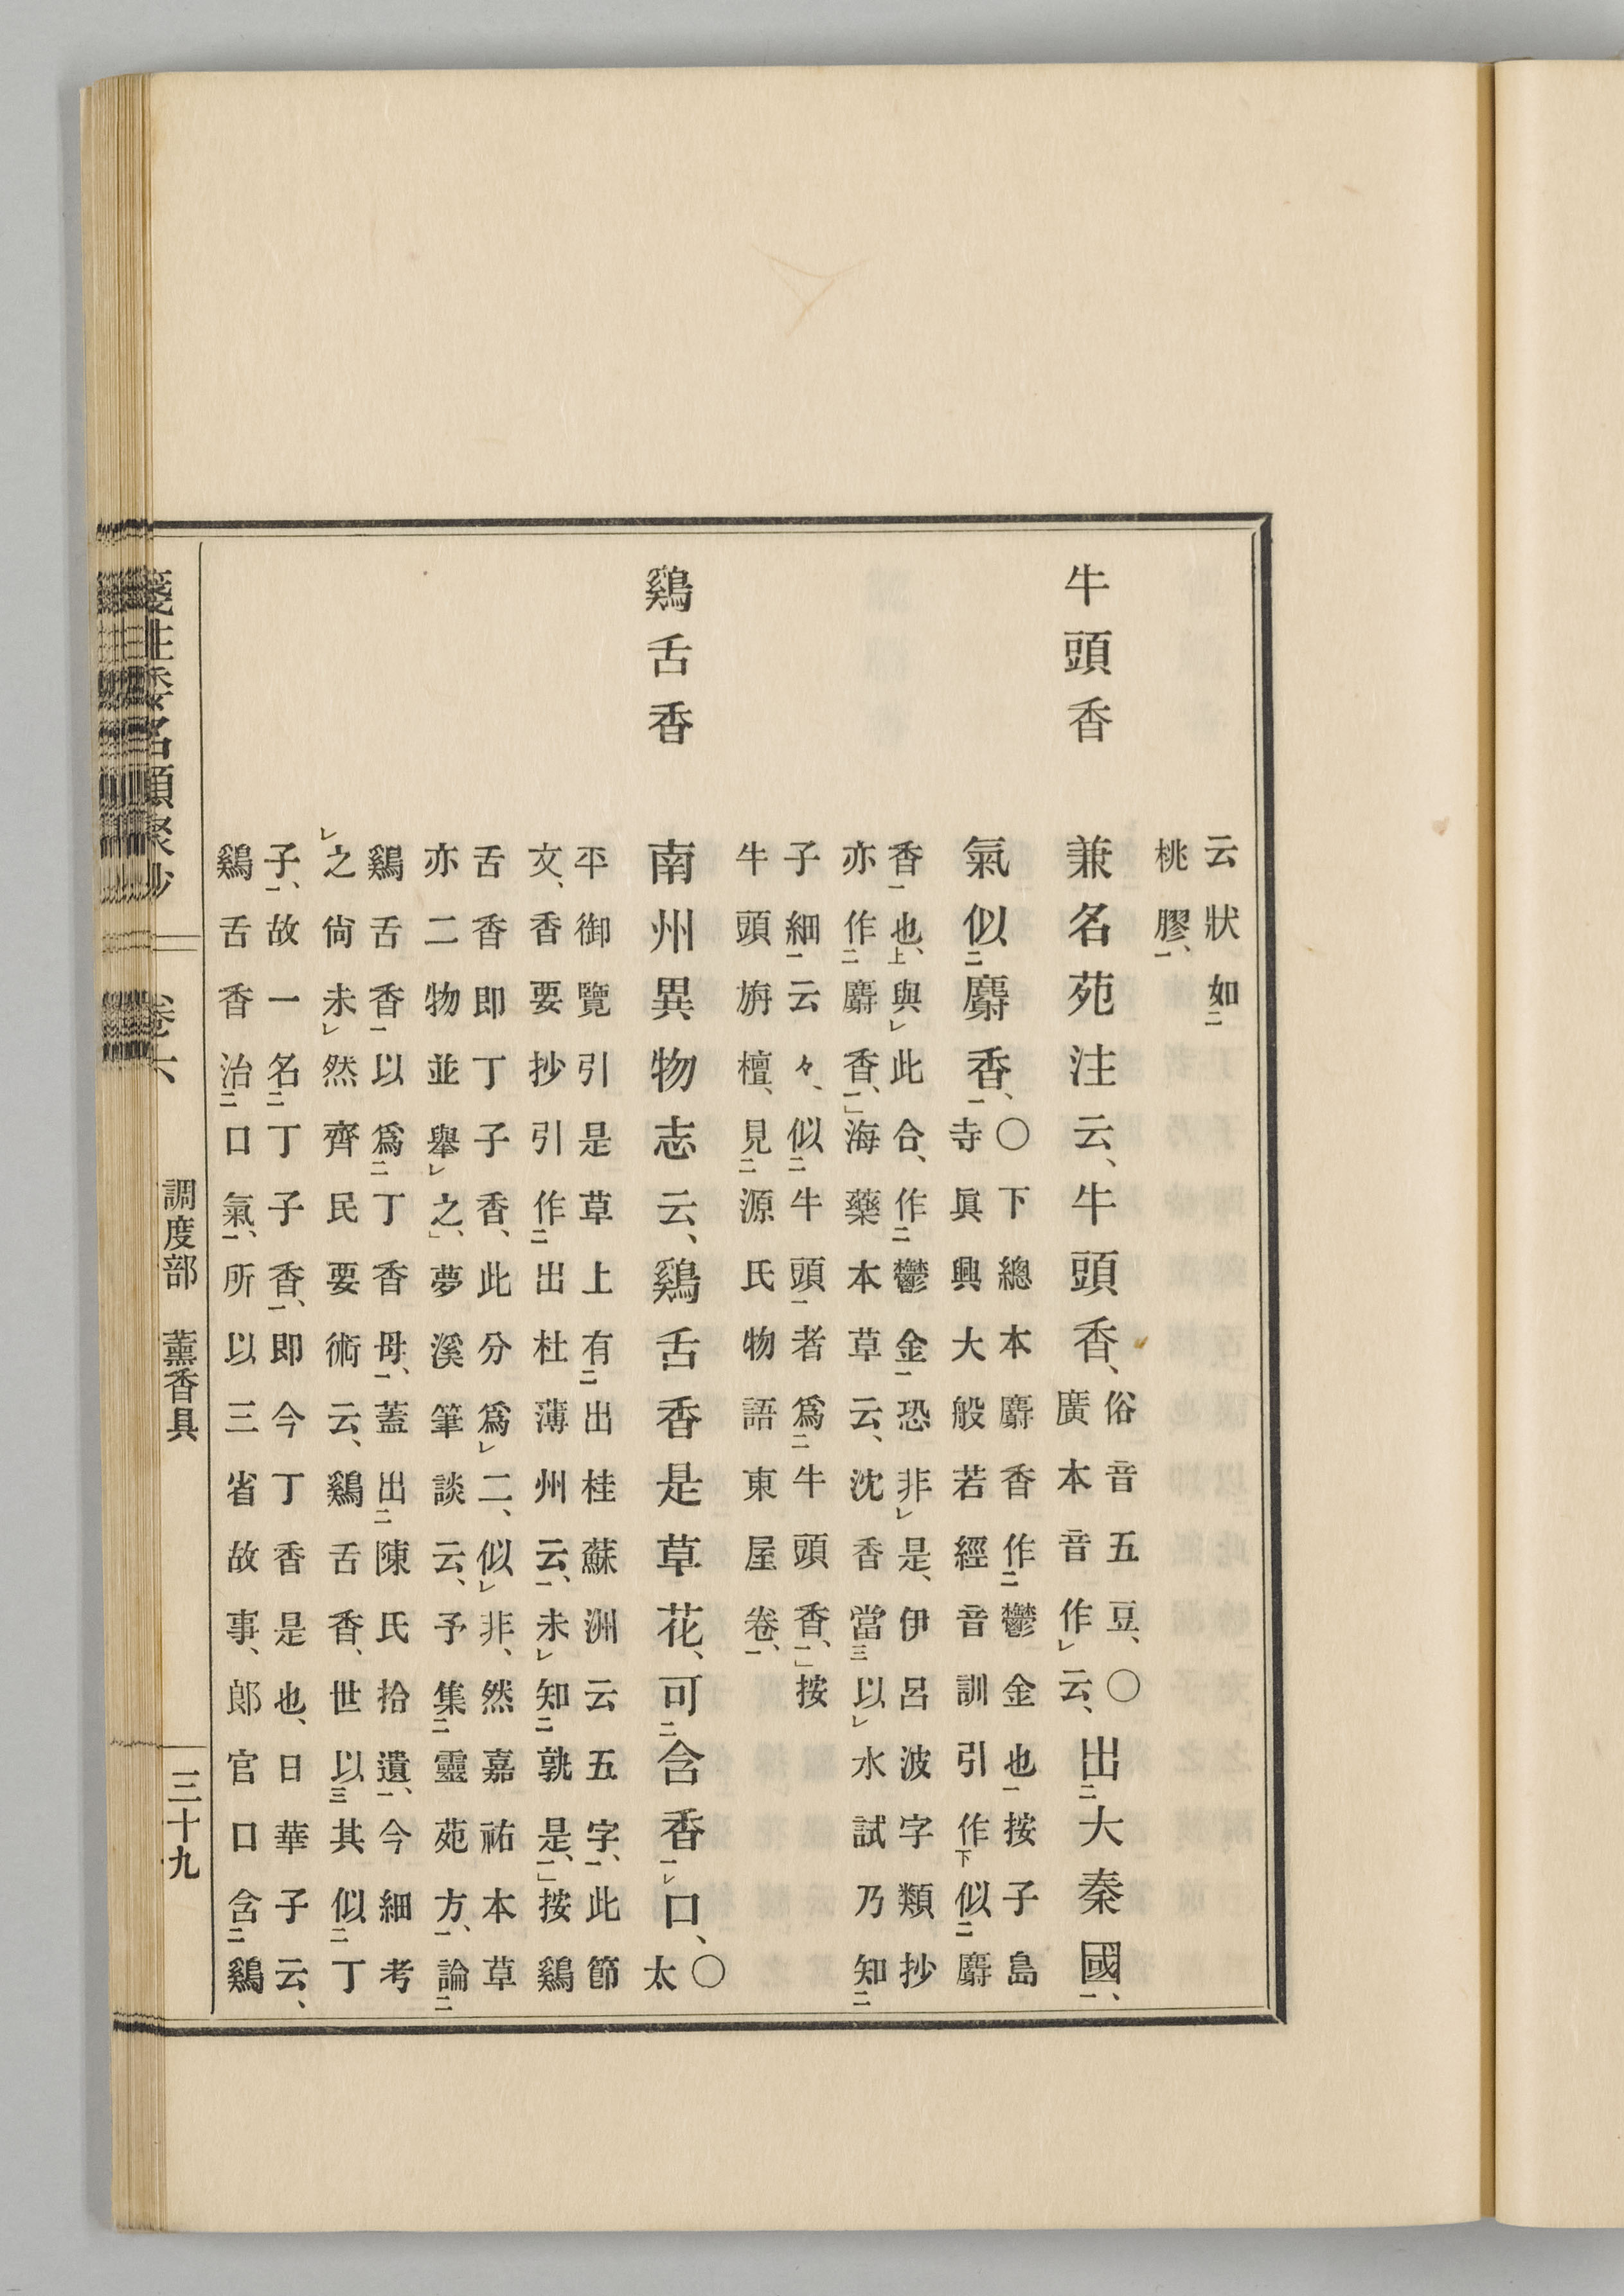 云狀如二
桃膠一、
牛頭香
兼名苑注云、牛頭香、
俗音五豆、〇
廣本音作レ云、
出二大秦國一、
氣似二麝香一、
〇下總本麝香作二鬱金也一按子島
寺眞興大般若經音訓引作下似二麝
香一也、上與レ此合、作二鬱金一恐非レ是、伊呂波字類抄
亦作二麝香一、」海藥本草云、沈香當三以レ水試乃知二
子細一云々、似二牛頭一者爲二牛頭香一、」按
牛頭旃檀、見二源氏物語東屋卷一、
鷄舌香
南州異物志云、鷄舌香是草花、可二含香一レ口、
〇
太
平御覽引是草上有二出桂蘇洲云五字一、此節
文、香要抄引作二出杜薄州云一、未レ知二孰是一、」按鷄
舌香即丁子香、此分爲レ二、似レ非、然嘉祐本草
亦二物並舉レ之、」夢溪筆談云、予集二靈苑方一、論二
鷄舌香一以爲二丁香母一、蓋出二陳氏拾遺一、今細考
レ之尙未レ然齊民要術云、鷄舌香、世以三其似二丁
子一、故一名二丁子香一、即今丁香是也、日華子云、
鷄舌香治二口氣一、所以三省故事、郞官口含二鷄
箋注倭名類聚抄 卷六 調度部 薰香具 三十九